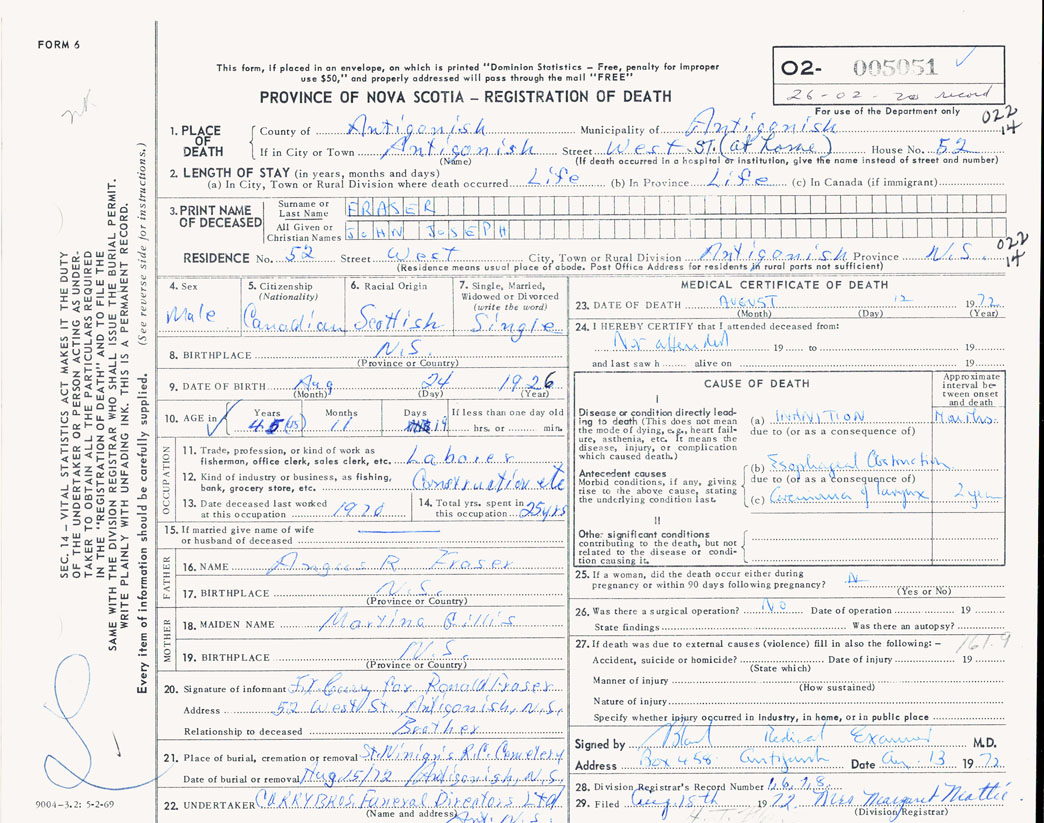 FORM 6
This form, if placed in an envelope, on which is printed "Dominion Statistics – Free, penalty for improper
use $50," and properly addressed will pass through the mail "FREE"
PROVINCE OF NOVA SCOTIA – REGISTRATION OF DEATH
02- 005051
26-02- record
For use of the Department only
022
14
1. PLACE OF DEATH
County of Antigonish Municipality of Antigonish
If in City or Town Antigonish Street West St. (at home) House No. 52
(Name) (If death occurred in a hospital or institution, give the name instead of street and number)
2. LENGTH OF STAY (in years, months and days)
(a) In City, Town or Rural Division where death occurred Life (b) In Province Life (c) In Canada (if immigrant)
3. PRINT NAME OF DECEASED
Surname or Last Name FRASER
All Given or Christian Names JOHN JOSEPH
RESIDENCE No. 52 Street West City, Town or Rural Division Antigonish Province N.S.
(Residence means usual place of abode. Post Office Address for residents in rural parts not sufficient)
022
14
4. Sex Male
5. Citizenship (Nationality) Canadian
6. Racial Origin Scottish
7. Single, Married, Widowed or Divorced (write the word) Single
8. BIRTHPLACE N.S.
(Province or Country)
9. DATE OF BIRTH Aug 24 1926
(Month) (Day) (Year)
10. AGE in Years Months Days If less than one day old
45 11 19 hrs. or min.
OCCUPATION
11. Trade, profession, or kind of work as
fisherman, office clerk, sales clerk, etc. Laborer
12. Kind of industry or business, as fishing,
bank, grocery store, etc. Construction etc
13. Date deceased last worked
at this occupation 1970
14. Total yrs. spent in
this occupation 25 yrs
15. If married give name of wife
or husband of deceased
FATHER
16. NAME Angus R Fraser
17. BIRTHPLACE N.S.
(Province or Country)
MOTHER
18. MAIDEN NAME Gillis
19. BIRTHPLACE N.S.
(Province or Country)
20. Signature of informant for Ronald Fraser
Address 52 West St Antigonish, N.S.
Relationship to deceased Brother
21. Place of burial, cremation or removal St Ninian's R.C. Cemetery
Date of burial or removal Aug 15/72 Antigonish, N.S.
22. UNDERTAKER CURRY BROS. Funeral Directors Ltd
(Name and address) Ant. N.S.
MEDICAL CERTIFICATE OF DEATH
23. DATE OF DEATH AUGUST 12 1972
(Month) (Day) (Year)
24. I HEREBY CERTIFY that I attended deceased from:
Not attended 19 to 19
and last saw h alive on 19
CAUSE OF DEATH
Approximate interval between onset and death
I
Disease or condition directly leading
to death (This does not mean
the mode of dying, e.g., heart failure,
asthenia, etc. It means the
disease, injury, or complication
which caused death.)
(a) INANITION Months
due to (or as a consequence of)
Antecedent causes
Morbid conditions, if any, giving
rise to the above cause, stating
the underlying condition last.
(b) Esophageal Obstruction
due to (or as a consequence of)
(c) Carcinoma of larynx 2 year
II
Other significant conditions
contributing to the death, but not
related to the disease or condition
causing it.
25. If a woman, did the death occur either during
pregnancy or within 90 days following pregnancy?
(Yes or No)
26. Was there a surgical operation? No Date of operation 19
State findings Was there an autopsy?
27. If death was due to external causes (violence) fill in also the following: –
161.9
Accident, suicide or homicide? Date of injury 19
(State which)
Manner of injury
(How sustained)
Nature of injury
Specify whether injury occurred in industry, in home, or in public place
Signed by Medical Examiner M.D.
Address Box 458 Antigonish Date Aug 13 1972.
28. Division Registrar's Record Number
29. Filed Aug 15th 1972 Mrs Margaret Mattie
(Division Registrar)
SEC. 14 – VITAL STATISTICS ACT MAKES IT THE DUTY
OF THE UNDERTAKER OR PERSON ACTING AS UNDER-
TAKER TO OBTAIN ALL THE PARTICULARS REQUIRED
IN THE "REGISTRATION OF DEATH" AND TO FILE THE
SAME WITH THE DIVISION REGISTRAR WHO SHALL ISSUE THE BURIAL PERMIT.
WRITE PLAINLY WITH UNFADING INK. THIS IS A PERMANENT RECORD.
Every item of information should be carefully supplied. (See reverse side for instructions.)
9004-3.2: 5-2-69